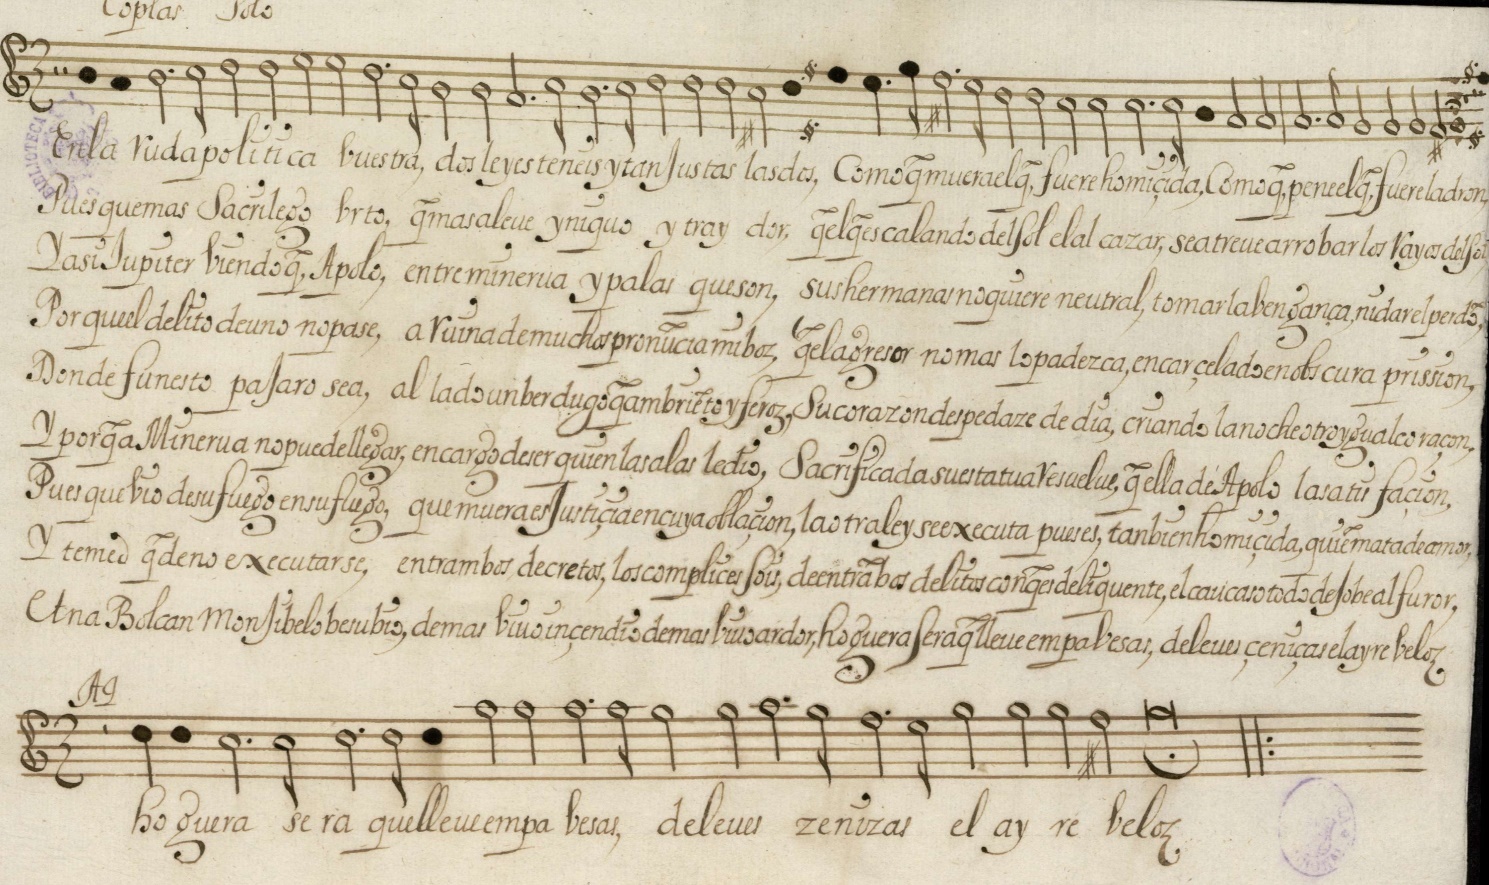 Coplas Solo
En la ruda politica buestra, dos leyes teneis y tan Justas las dos, Como q̃ muera el q̃, fuere homiçida, Como q̃, pene el q̃, fuere ladron,
Pues que mas Sacrilego brto, q̃ mas aleue yniquo y traydor, q̃ el q̃ escalando del Sol el alcazar, se atreue arrobar los rayos del Sol,
Y asi Jupiter biendo q̃, Apolo, entre minerua y palas que son, sus hermanas no quiere neutral, tomar la bengança, ni dar el perdõ,
Por que el delito de uno no pase, a ruina de muchos pronũcia mi boz, q̃ el agresor no mas lo padezca, encarçelado en obscura prission,
Donde funesto paJaro sea, al lado un berdugo q̃ ambriẽto y feroz, Su corazon despedaze de dia, criando la noche otro ygual coraçon,
Y porq̃ a Minerua no puede llegar, en cargo de ser quien las alas le dio, Sacrificada su estatua resuelue, q̃ ella dé á Apolo la satisfaçion,
Pues que bio de su fuego en su fuego, que muera es Justiçia en cuya oblaçion, la otra ley se executa pues es, tanbien homiçida, quiẽ mata de amor,
Y temed q̃ de no executarse, entrambos decretos, los complices sois, de entrãbos delitos con q̃ es deliquente, el caucaso todo desobe al furor,
Etna Bolcan monJibelo besubio, de mas biuo inçendio de mas biuo ardor, hoguera sera q̃ lleue em pabesas, de leues çeniças el ayre beloz
A 4
hoguera sera que lleue em pabesas, de leues zenizas el ayre beloz